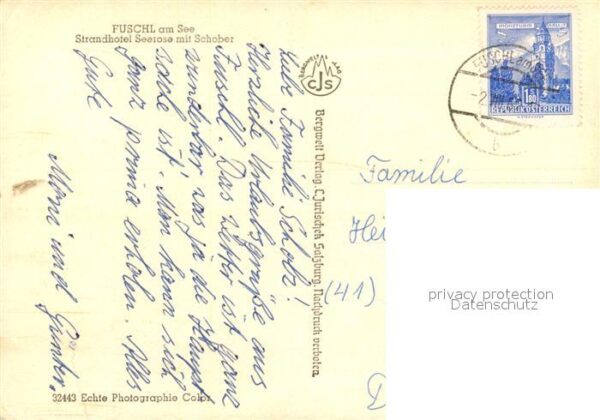 FUSCHL am See
Strandhotel Seerose mit Schober
Liebe Familie Scholz!
Herzliche Urlaubsgrüße aus
Fuschl. Das Wetter ist ganz
wunderbar was ja die Haupt
sache ist. Man kann sich
ganz prima erholen. Alles
Gute
Moni und Günter.
32443 Echte Photographie Color
CJS
Bergwelt Verlag, C. Jurischek Salzburg. Nachdruck verboten
FUSCHL am
1.80
REPUBLIK ÖSTERREICH
Familie
Hei
(41)
D
privacy protection
Datenschutz